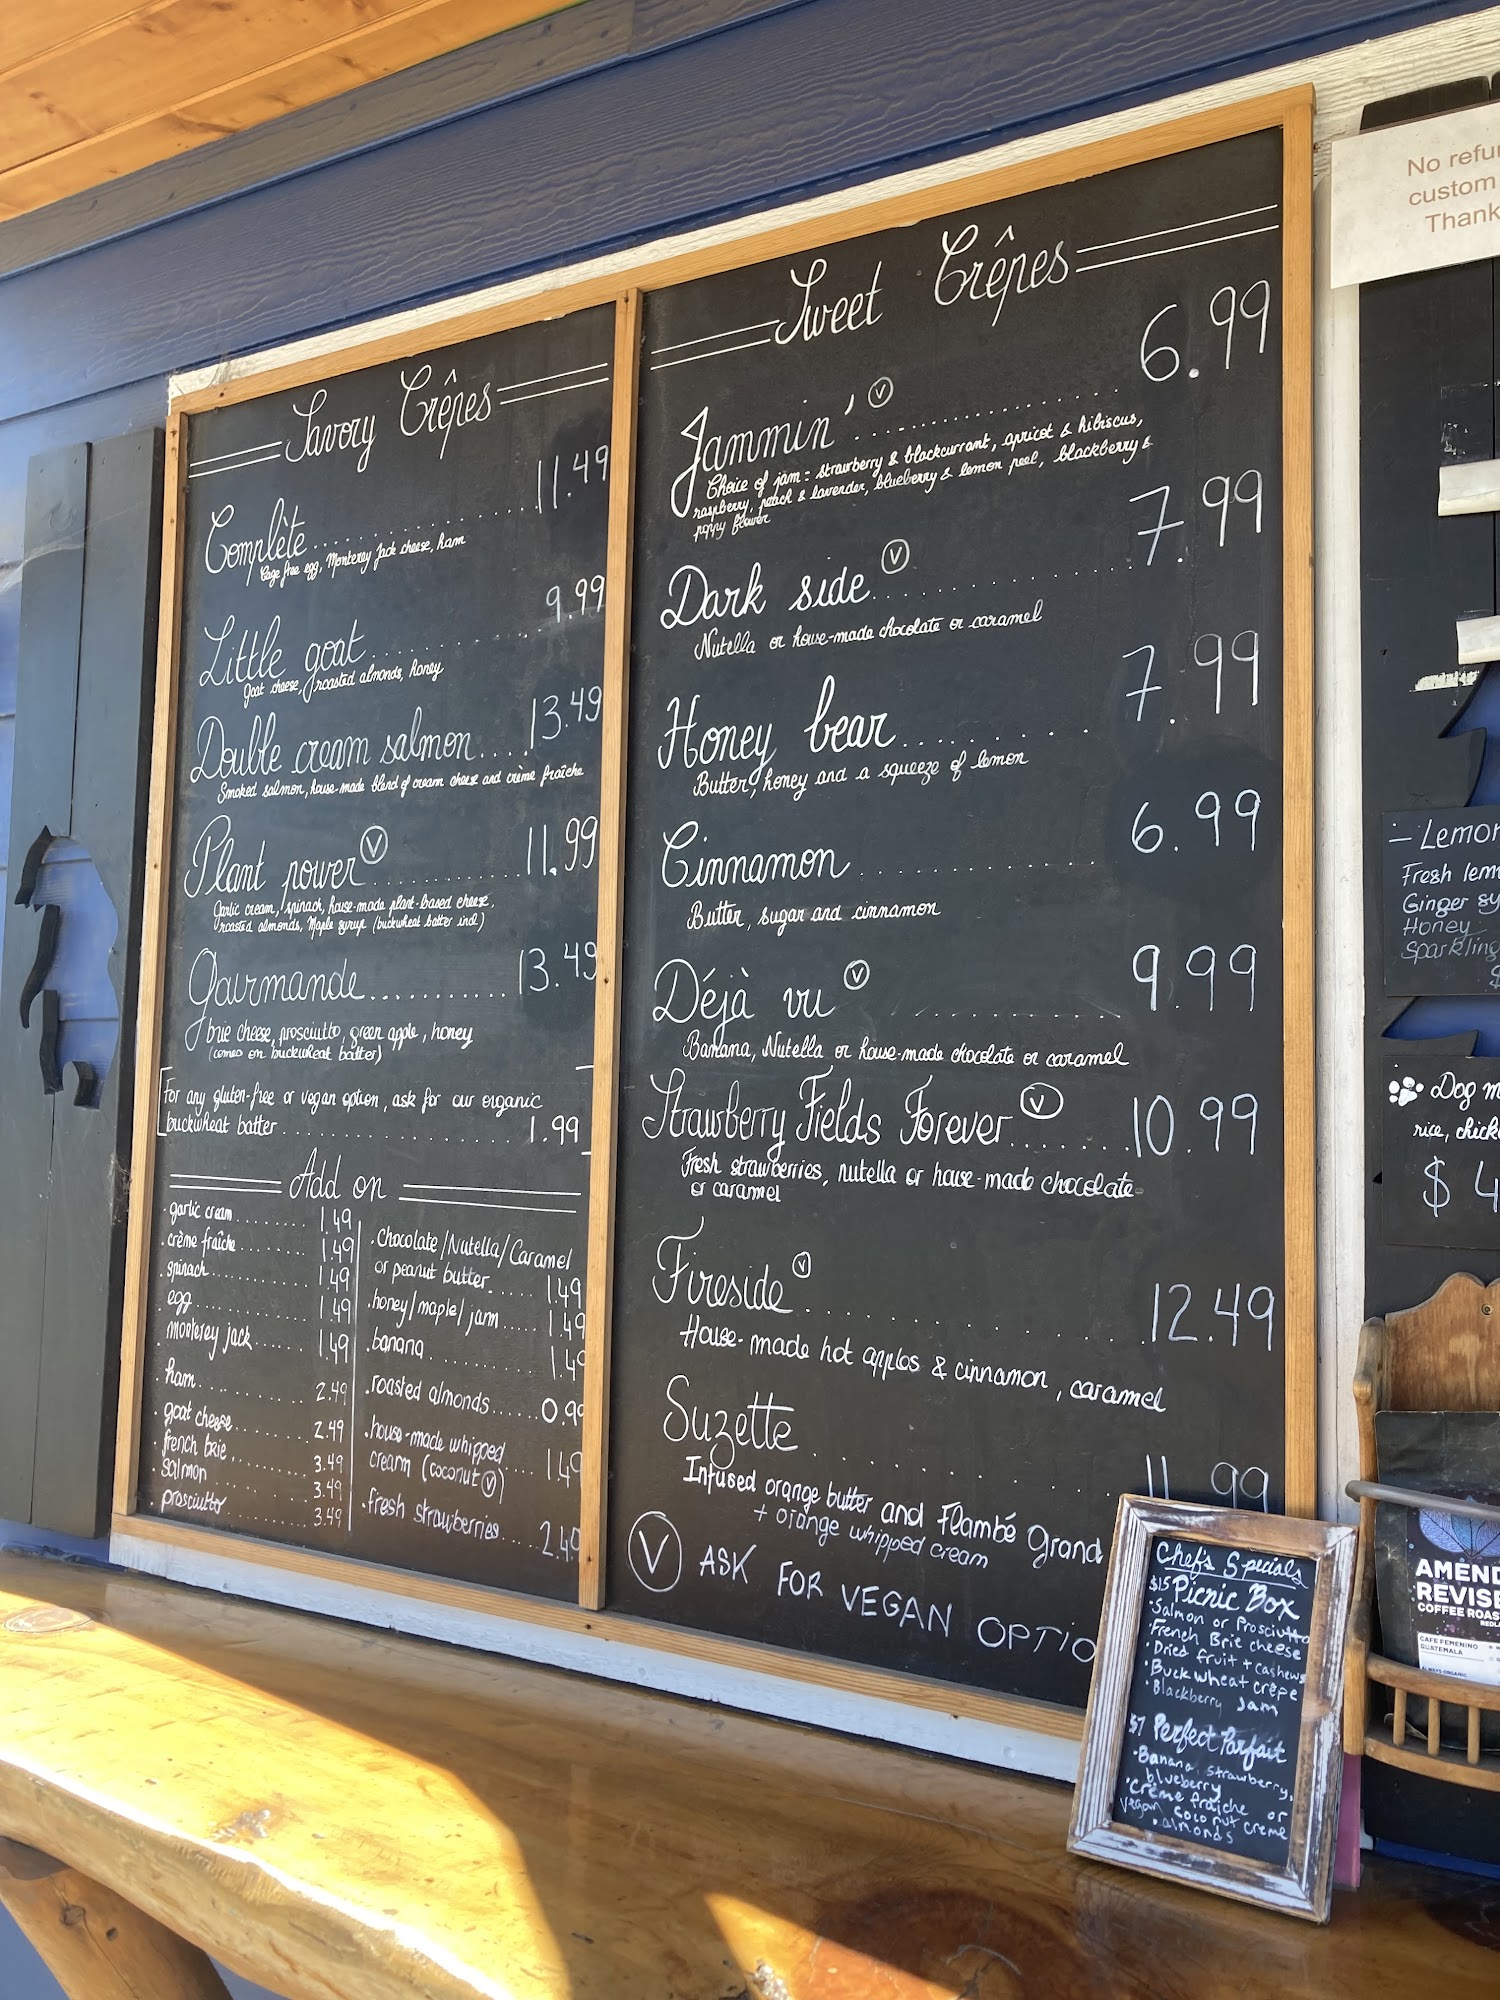 Savory Crêpes
Complète 11.49
Cage free egg, Monterey Jack cheese, ham
Little goat 9.99
Goat cheese, roasted almonds, honey
Double cream salmon 13.49
Smoked salmon, house-made blend of cream cheese and crème fraîche
Plant power Ⓥ 11.99
Garlic cream, spinach, house-made plant-based cheese,
roasted almonds, Maple syrup (buckwheat batter incl)
Gourmande 13.49
brie cheese, prosciutto, green apple, honey
(comes on buckwheat batter)
For any gluten-free or vegan option, ask for our organic
buckwheat batter 1.99
Add on
garlic cream 1.49
crème fraîche 1.49
spinach 1.49
egg 1.49
monterey jack 1.49
ham 2.49
goat cheese 2.49
french brie 3.49
salmon 3.49
prosciutto 3.49
chocolate/Nutella/Caramel
or peanut butter 1.49
honey/maple/jam 1.49
banana 1.49
roasted almonds 0.99
house-made whipped
cream (coconut Ⓥ) 1.49
fresh strawberries 2.49
Sweet Crêpes
Jammin' Ⓥ 6.99
Choice of jam: strawberry & blackcurrant, apricot & hibiscus,
raspberry, peach & lavender, blueberry & lemon peel, blackberry &
poppy flower
Dark side Ⓥ 7.99
Nutella or house-made chocolate or caramel
Honey bear 7.99
Butter, honey and a squeeze of lemon
Cinnamon 6.99
Butter, sugar and cinnamon
Déjà vu Ⓥ 9.99
Banana, Nutella or house-made chocolate or caramel
Strawberry Fields Forever Ⓥ 10.99
Fresh strawberries, nutella or house-made chocolate
or caramel
Fireside Ⓥ 12.49
House-made hot apples & cinnamon, caramel
Suzette 11.99
Infused orange butter and Flambé Grand
+ orange whipped cream
Ⓥ ASK FOR VEGAN OPTIO
Chef's Specials
$15 Picnic Box
Salmon or Prosciutto
French Brie cheese
Dried fruit + cashews
Buckwheat crêpe
Blackberry Jam
$7 Perfect Parfait
Banana, strawberry,
blueberry
Crème fraîche or
vegan coconut creme
almonds
No refun
custom
Thank
Lemon
Fresh lem
Ginger sy
Honey
Sparkling
$
Dog m
rice, chick
$ 4
AMEND
REVISE
COFFEE ROAS
REDL
CAFE FEMENINO
GUATEMALA
ALWAYS ORGANIC